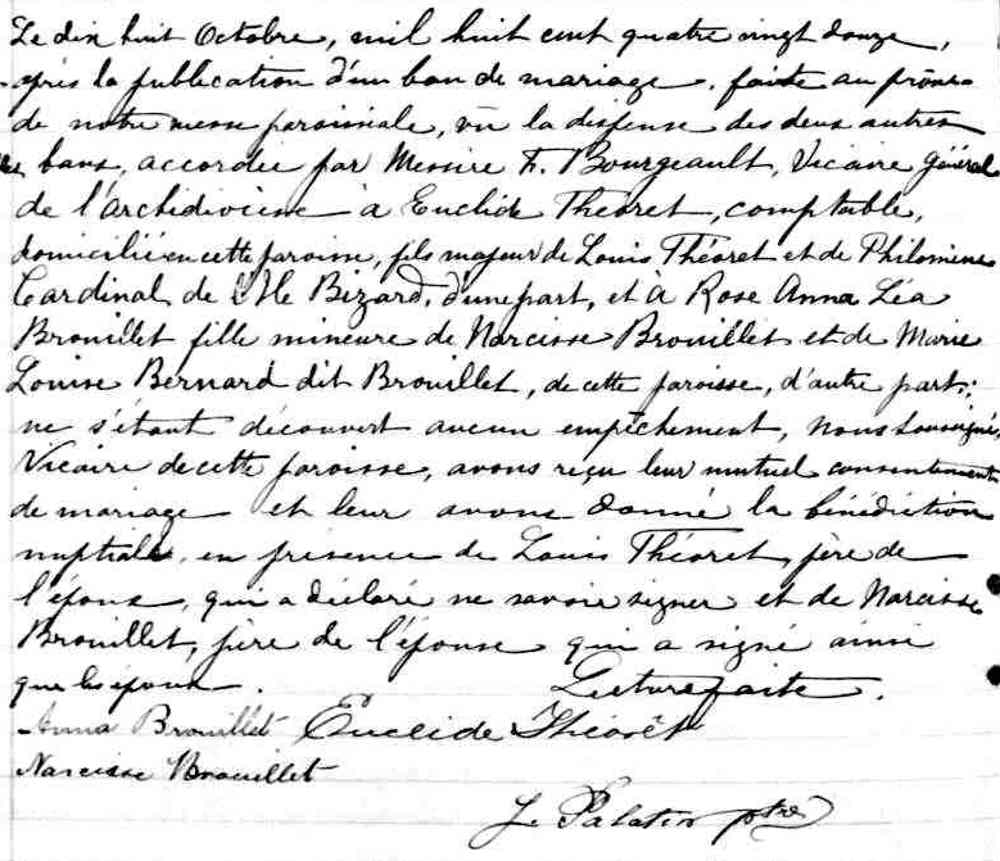 Le dix huit Octobre, mil huit cent quatre vingt douze,
après la publication d'un ban de mariage, faite au prône
de notre messe paroissiale, vu la dispense des deux autres
bans, accordée par Messire F. Bourgeault, Vicaire Général
de l'archidiocèse à Euclide Théoret, comptable,
domicilié en cette paroisse, fils majeur de Louis Théoret et de Philomène
Cardinal de l'Ile Bizard, d'une part, et à Rose Anna Léa
Brouillet fille mineure de Narcisse Brouillet et de Marie
Louise Bernard dit Brouillet, de cette paroisse, d'autre part;
ne s'étant découvert aucun empêchement, nous soussigné,
Vicaire de cette paroisse, avons reçu leur mutuel consentement
de mariage et leur avons donné la bénédiction
nuptiale en présence de Louis Théoret, père de
l'époux, qui a déclaré ne savoir signer et de Narcisse
Brouillet, père de l'épouse qui a signé ainsi
que les époux. Lecture faite.
Anna Brouillet Euclide Théorêt
Narcisse Brouillet
J. Palatin ptre